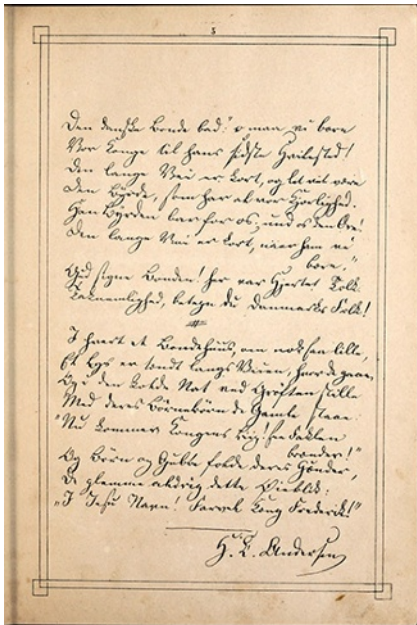 5
Den danske Bonde bad: „o maa vi bære
Vor Konge til hans sidste Hvilested!
Den lange Vei er kort, og let vil være
Den Byrde, som har al vor Kjærlighed.
Han Byrden bar for os, und os den Ære!
Den lange Vei er kort, naar ham vi
bære."
Gud signe Bonden! her var Hjertet Tolk.
Taknemlighed, betegn du Danmarks Folk!
I hvert et Bondehuus, om nok saa lille,
Et Lys er tændt langs Veien, hvor de
Og i den kolde Nat ved Grøften stille
Med deres Børnebørn de Gamle staae:
„Nu kommer Kongens Liig! see Faklen
brænder!"
Og Børn og Gubbe folde deres Hænder,
De glemme aldrig dette Øieblik:
„I Jesu Navn! Farvel Kong Frederik!"
H. C. Andersen